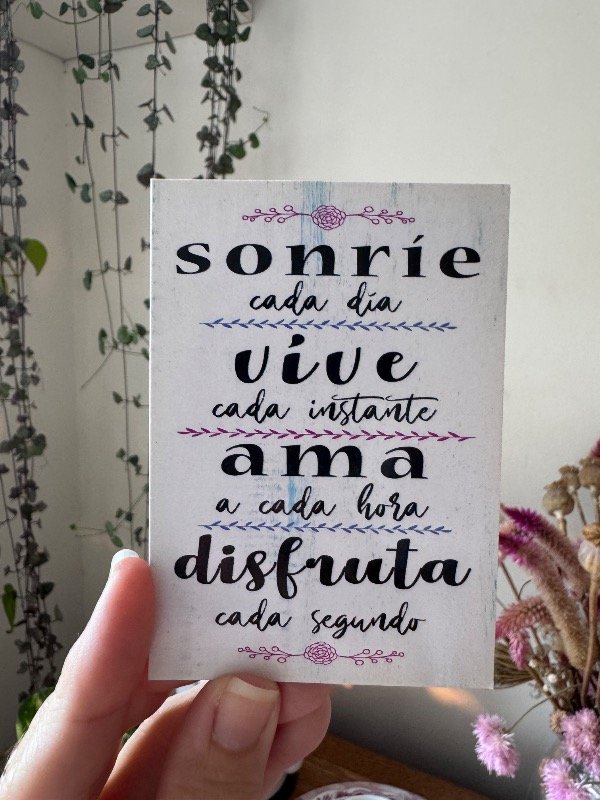 sonríe
cada día
vive
cada instante
ama
a cada hora
disfruta
cada segundo